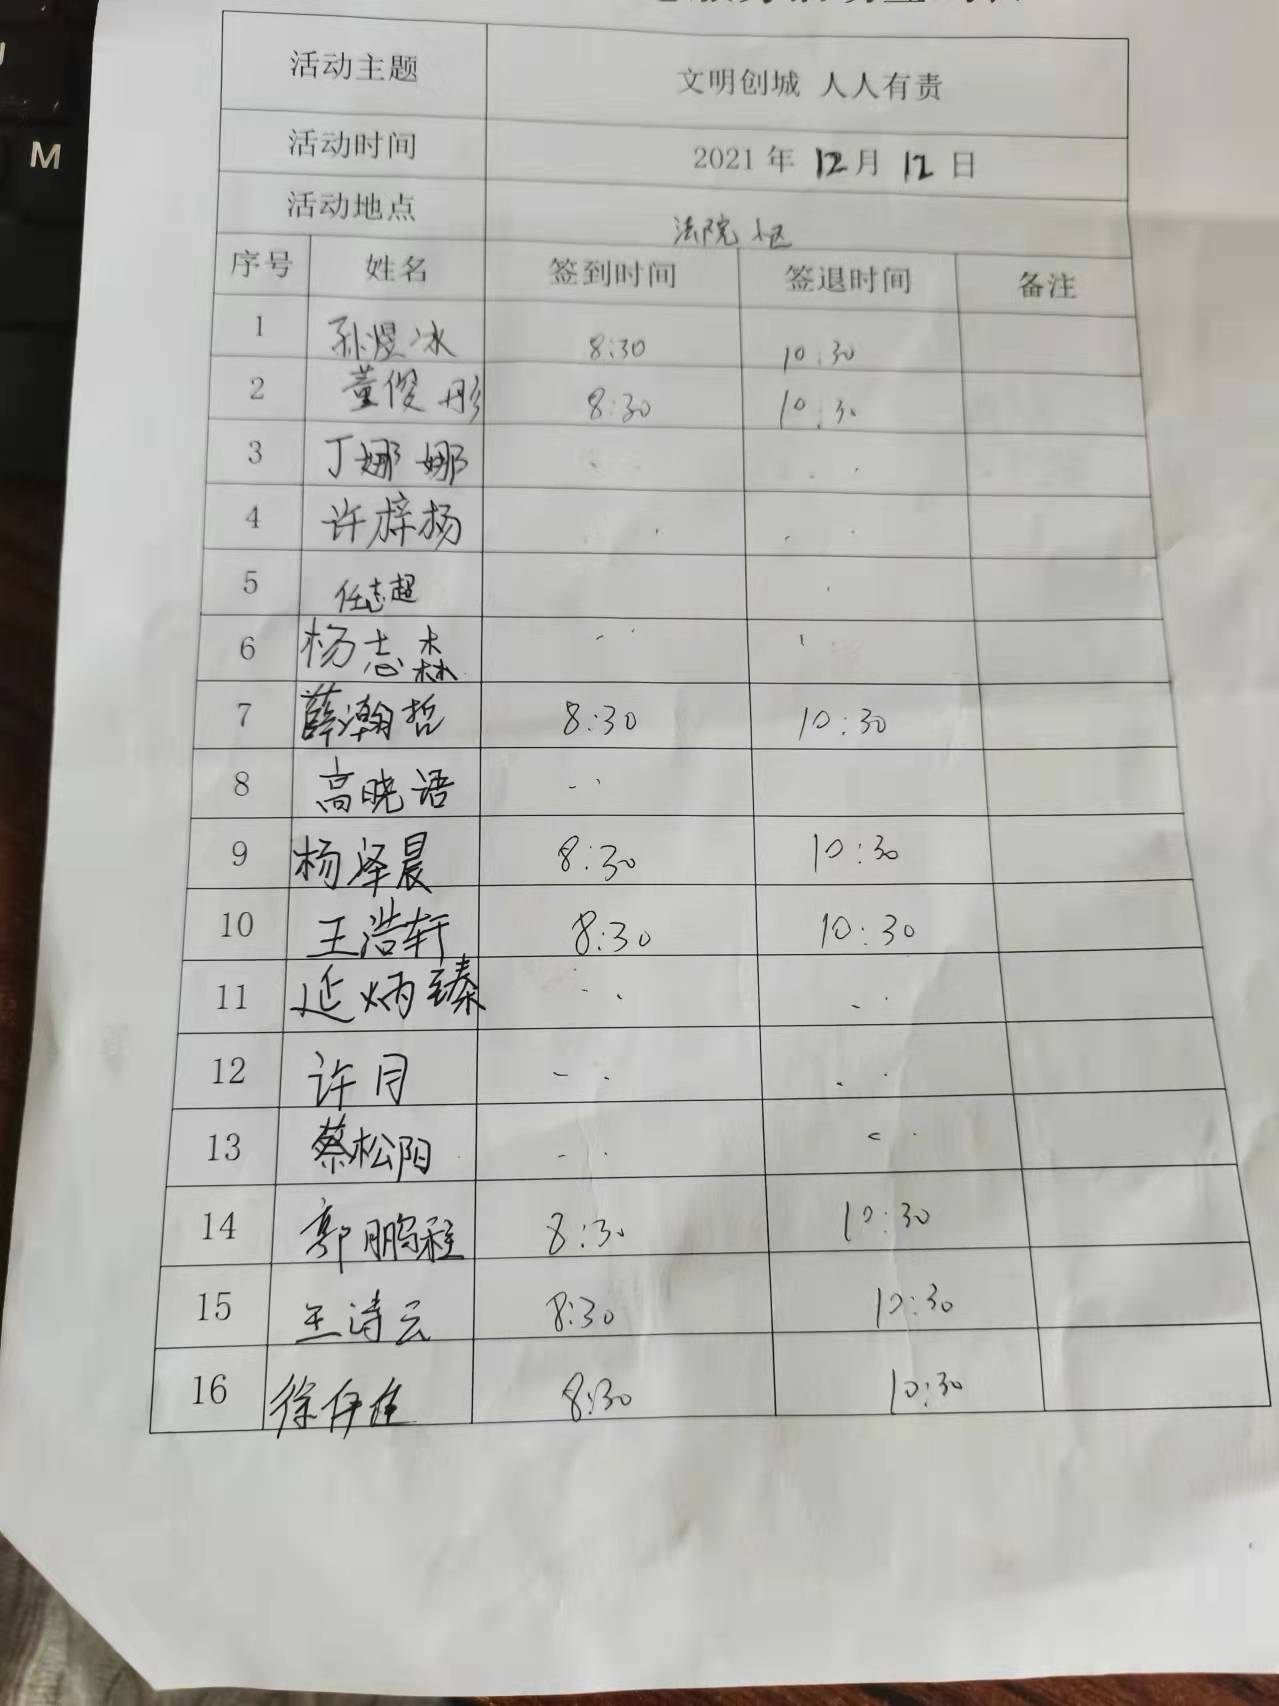 活动主题 文明创城 人人有责
活动时间 2021年12月12日
活动地点 法院小区
序号 姓名 签到时间 签退时间 备注
1 孙煜冰 8:30 10:30
2 董俊彤 8:30 10:30
3 丁娜娜
4 许梓杨
5 任志超
6 杨志森
7 薛瀚哲 8:30 10:30
8 高晓语
9 杨泽晨 8:30 10:30
10 王浩轩 8:30 10:30
11 延炳臻
12 许月
13 蔡松阳
14 郭鹏程 8:30 10:30
15 王诗云 8:30 10:30
16 徐伊佳 8:30 10:30
M